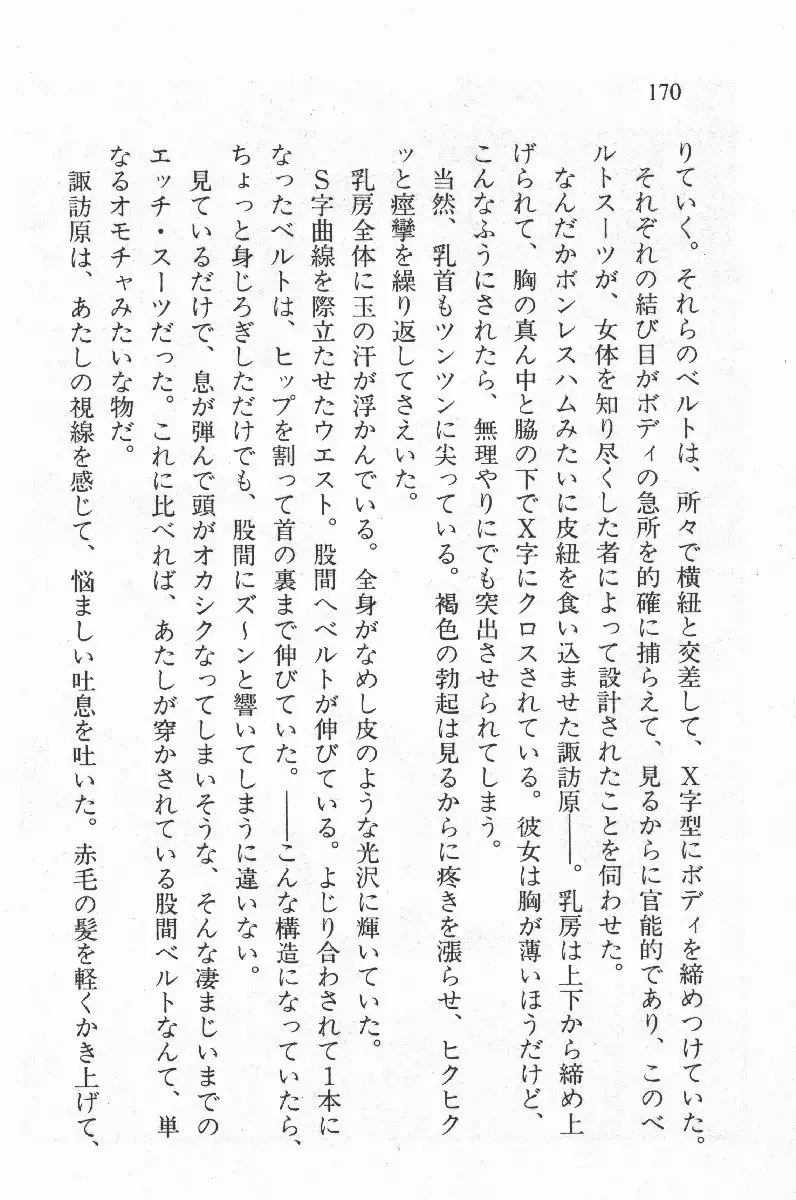 170
りていく。それらのベルトは、所々で横紐と交差して、Ｘ字型にボディを締めつけていた。
それぞれの結び目がボディの急所を的確に捕らえて、見るからに官能的であり、このベ
ルトスーツが、女体を知り尽くした者によって設計されたことを伺わせた。
なんだかボンレスハムみたいに皮紐を食い込ませた諏訪原――。乳房は上下から締め上
げられて、胸の真ん中と脇の下でＸ字にクロスされている。彼女は胸が薄いほうだけど、
こんなふうにされたら、無理やりにでも突出させられてしまう。
当然、乳首もツンツンに尖っている。褐色の勃起は見るからに疼きを漲らせ、ヒクヒク
ッと痙攣を繰り返してさえいた。
乳房全体に玉の汗が浮かんでいる。全身がなめし皮のような光沢に輝いていた。
Ｓ字曲線を際立たせたウエスト。股間へベルトが伸びている。よじり合わされて１本に
なったベルトは、ヒップを割って首の裏まで伸びていた。――こんな構造になっていたら、
ちょっと身じろぎしただけでも、股間にズ～ンと響いてしまうに違いない。
見ているだけで、息が弾んで頭がオカシクなってしまいそうな、そんな凄まじいまでの
エッチ・スーツだった。これに比べれば、あたしが穿かされている股間ベルトなんて、単
なるオモチャみたいな物だ。
諏訪原は、あたしの視線を感じて、悩ましい吐息を吐いた。赤毛の髪を軽くかき上げて、